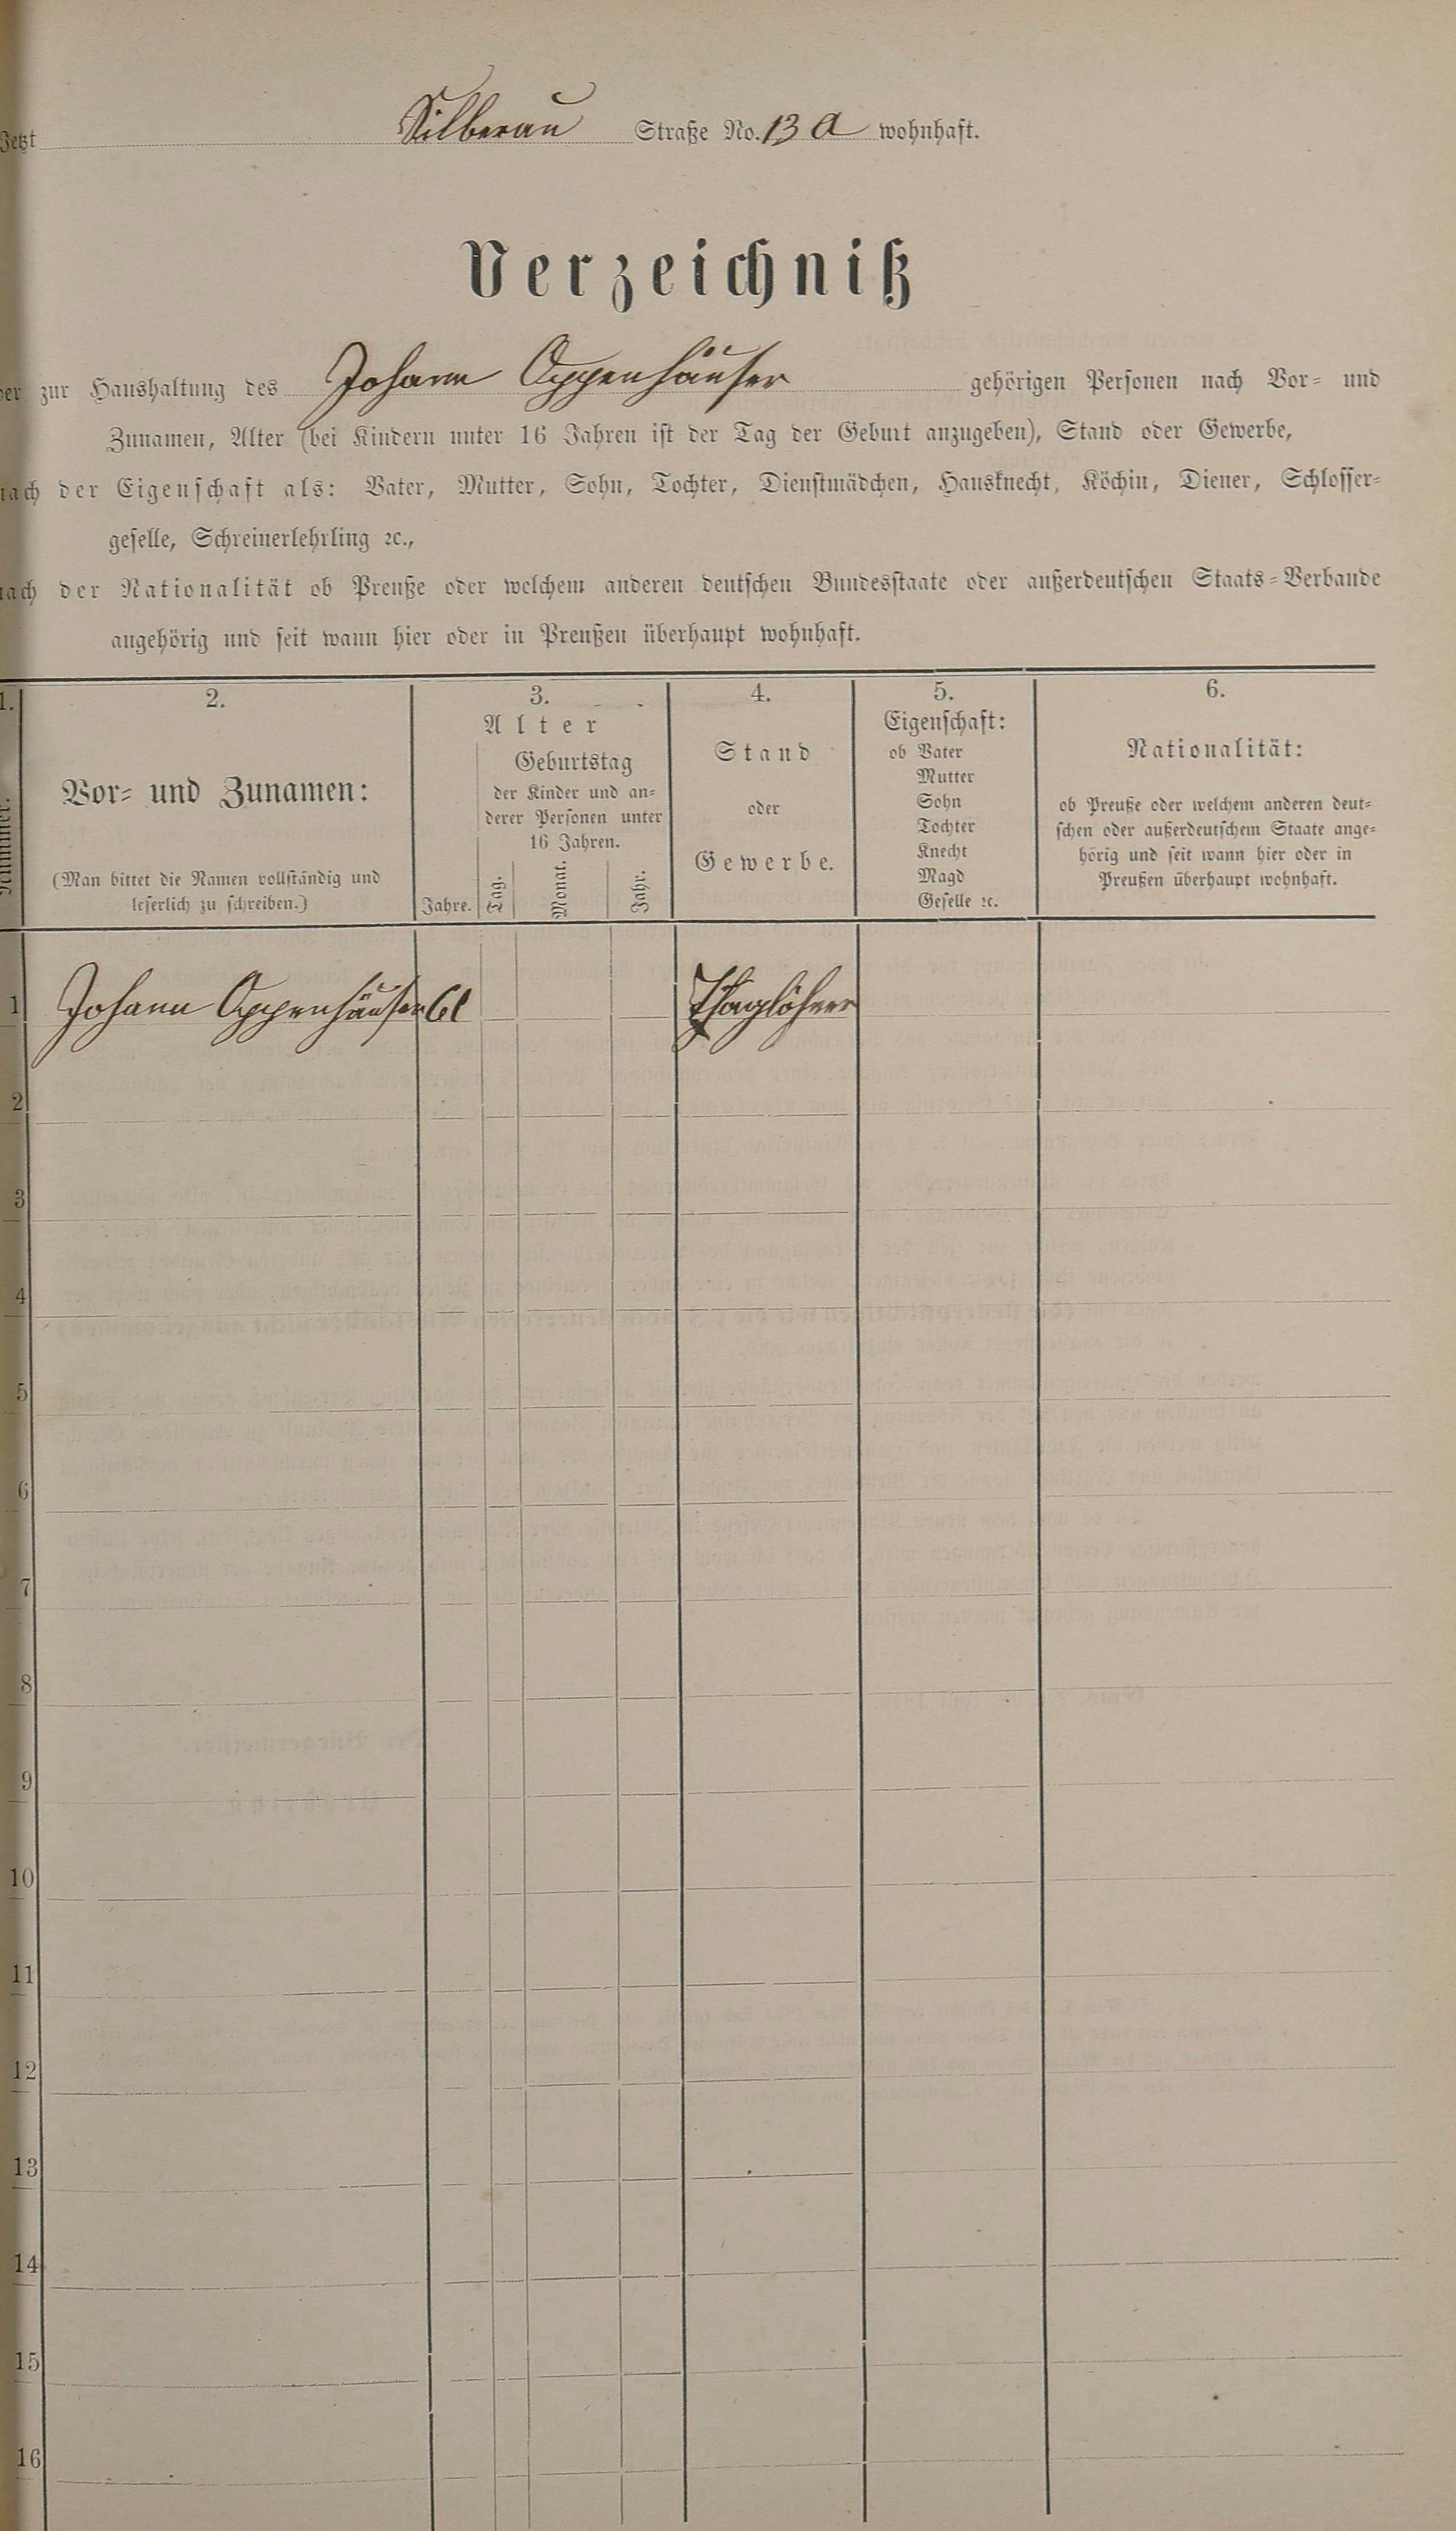 Jetzt Silberau Straße No. 13 a wohnhaft.
Verzeichniß
der zur Haushaltung des Johann Oppenhäuser gehörigen Personen nach Vor- und
Zunamen, Alter (bei Kindern unter 16 Jahren ist der Tag der Geburt anzugeben), Stand oder Gewerbe,
nach der Eigenschaft als: Vater, Mutter, Sohn, Tochter, Dienstmädchen, Hausknecht, Köchin, Diener, Schlosser-
geselle, Schreinerlehrling ꝛc.,
nach der Nationalität ob Preuße oder welchem anderen deutschen Bundesstaate oder außerdeutschen Staats-Verbande
angehörig und seit wann hier oder in Preußen überhaupt wohnhaft.
1.
Nummer.
2.
Vor- und Zunamen:
(Man bittet die Namen vollständig und
leserlich zu schreiben.)
3.
Alter
Geburtstag
der Kinder und an-
derer Personen unter
16 Jahren.
Jahre. Tag. Monat. Jahr.
4.
Stand
oder
Gewerbe.
5.
Eigenschaft:
ob Vater
Mutter
Sohn
Tochter
Knecht
Magd
Geselle ꝛc.
6.
Nationalität:
ob Preuße oder welchem anderen deut-
schen oder außerdeutschem Staate ange-
hörig und seit wann hier oder in
Preußen überhaupt wohnhaft.
1 Johann Oppenhäuser 61 Thaglöhner
2
3
4
5
6
7
8
9
10
11
12
13
14
15
16